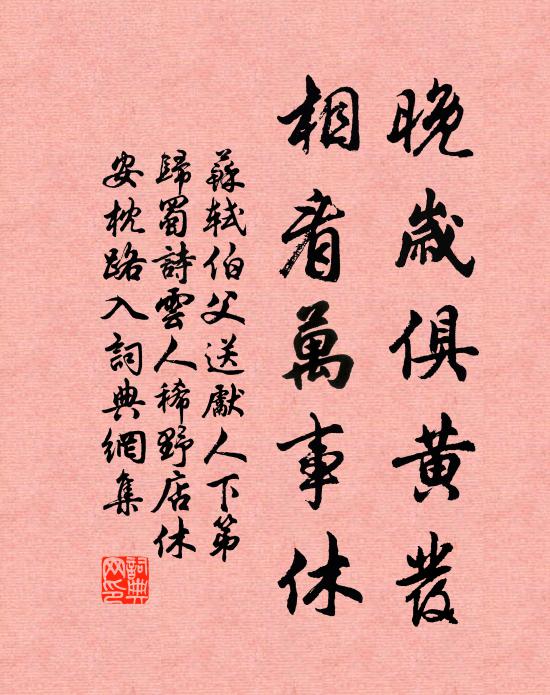 晚歲俱黄發
相看萬事休
蘇軾伯父送獻人下第
歸蜀詩雲人稀野店休
安枕路入詞典網集
詞典网印